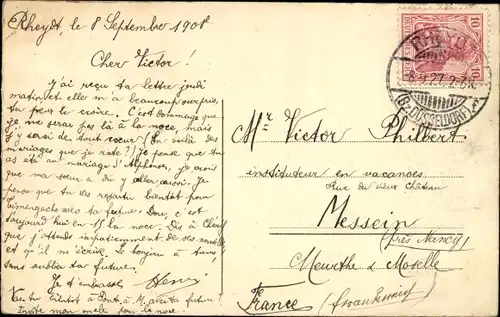 Rheydt, le 8 Septembre 1908
Cher Victor !
J'ai reçu ta lettre jeudi
matin et elle m'a beaucoup surpris,
tu peux le croire. C'est dommage que
je ne serai pas là à la noce, mais
j'y serai de tout cœur ! (En voilà des
mariages que je rate ?) Je pense que tu
as été au mariage d'Alphonse, je crois
que ma sœur a dû y aller aussi. Je
pense que tu vas repartir bientôt pour
avec ta future. Donc, c'est
aujourd'hui en 15 la noce. Dis à
que j'attends impatiemment de ses nouvelles
et qu'il m'écrive. Le bonjour à tous,
sans oublier ta future.
Je t'embrasse Henri
à ta future
Invite mon
pour la noce.
Mr Victor Philbert
instituteur en vacances
Rue du vieux Château
Messein
(près Nancy)
Meurthe & Moselle
France (Frankreich)
10 10
RHEYDT
(Bz. DÜSSELDORF)